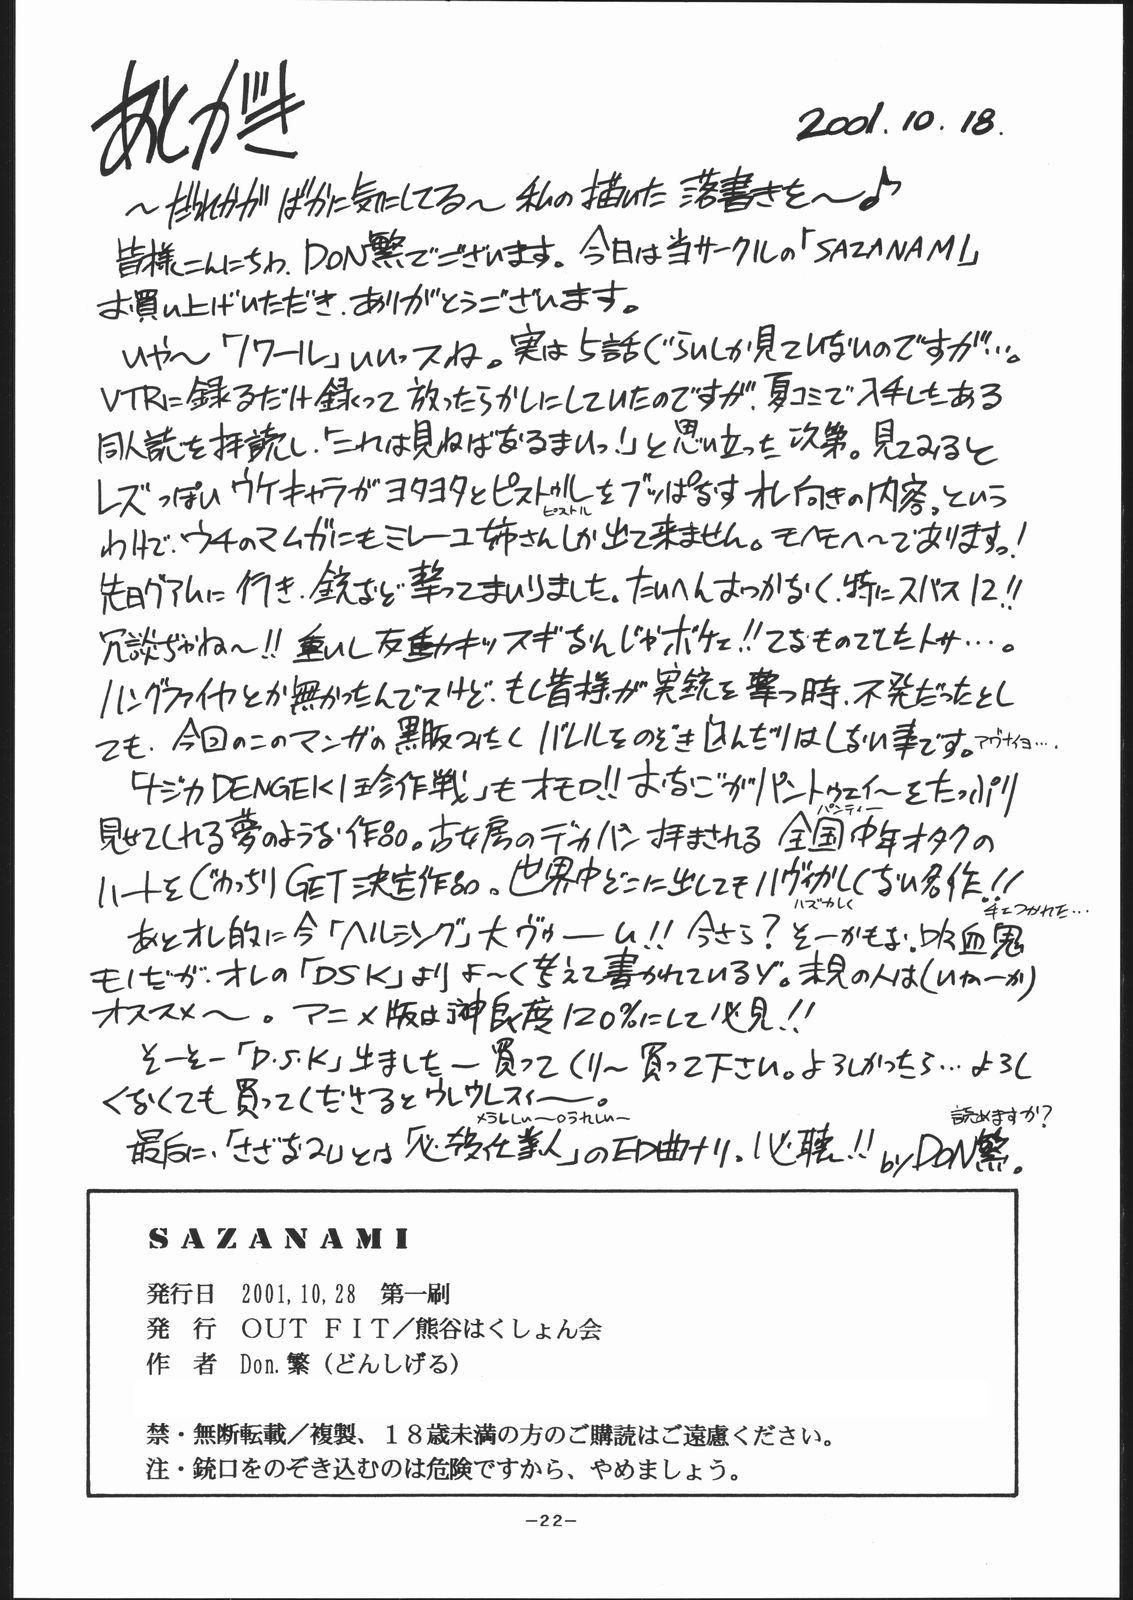 あとがき
2001.10.18.
〜だれかが ばかに気にしてる〜 私の 描いた 落書きを〜♪
皆様こんにちわ、DON繁でございます。今日は当サークルの「SAZANAMI」
お買い上げいただき、ありがとうございます。
いや〜「ノワール」いいっスね。実は5話ぐらいしか見ていないのですが…。
VTRに録るだけ録って放ったらかしにしていたのですが、夏コミで入手したある
同人誌を拝読し、「これは見ねばあるまいっ!」と思い立った次第。見てみると
レズっぽいウケキャラがヨタヨタとピストゥルをブッぱなすオレ向きの内容。という
ピストル
わけで、ウチのマムガにもミレーユ姉さんしか出て来ません。モヘモヘ〜でありますっ!
先日グアムに行き、銃など撃ってまいりました。たいへんおっかなく、特にスパス12!!
冗談ぢゃね〜!! 重いし反動キッツスギなんじゃボケェ!!てなものでしたトサ…。
ハングファイヤとか無かったんでスけど、もし皆様が実銃を撃つ時、不発だったとし
ても、今回のこのマンガの黒服みたく バレルをのぞき込んだりはしない事です。アヴナイヨ….
「ナジカDENGEKI珍作戦」もオモロ!! おなごがパントゥェイ〜をたっぷり
パンティー
見せてくれる夢のような作品。古女房のデカパン拝まされる 全国中年オタクの
ハートをぐわっちりGET決定作品。世界中どこに出してもハヴィかしくない名作!!
ハズカしく
手ェつかれた…
あとオレ的に今「ヘルシング」大ヴゥーム!! 今さら?そーかもな。吸血鬼
モノだが、オレの「DSK」より よ〜く考えて書かれているゾ。未見の人は(いねーか)
オススメ〜。アニメ版は神良度120%にして必見!!
そーそー「D.S.K」出ました— 買ってくり〜買って下さい。よろしかったら…よろし
くなくても買ってくださるとウレウレスィ〜。
×うらしい〜○うれしい〜
読めますか?
最后に、「さざなみ」とは「必殺仕業人」のED曲ナリ。必聴!! by DON繁。
SAZANAMI
発行日 2001,10,28 第一刷
発 行 OUT FIT/熊谷はくしょん会
作 者 Don.繁(どんしげる)
禁・無断転載/複製、18歳未満の方のご購読はご遠慮ください。
注・銃口をのぞき込むのは危険ですから、やめましょう。
-22-